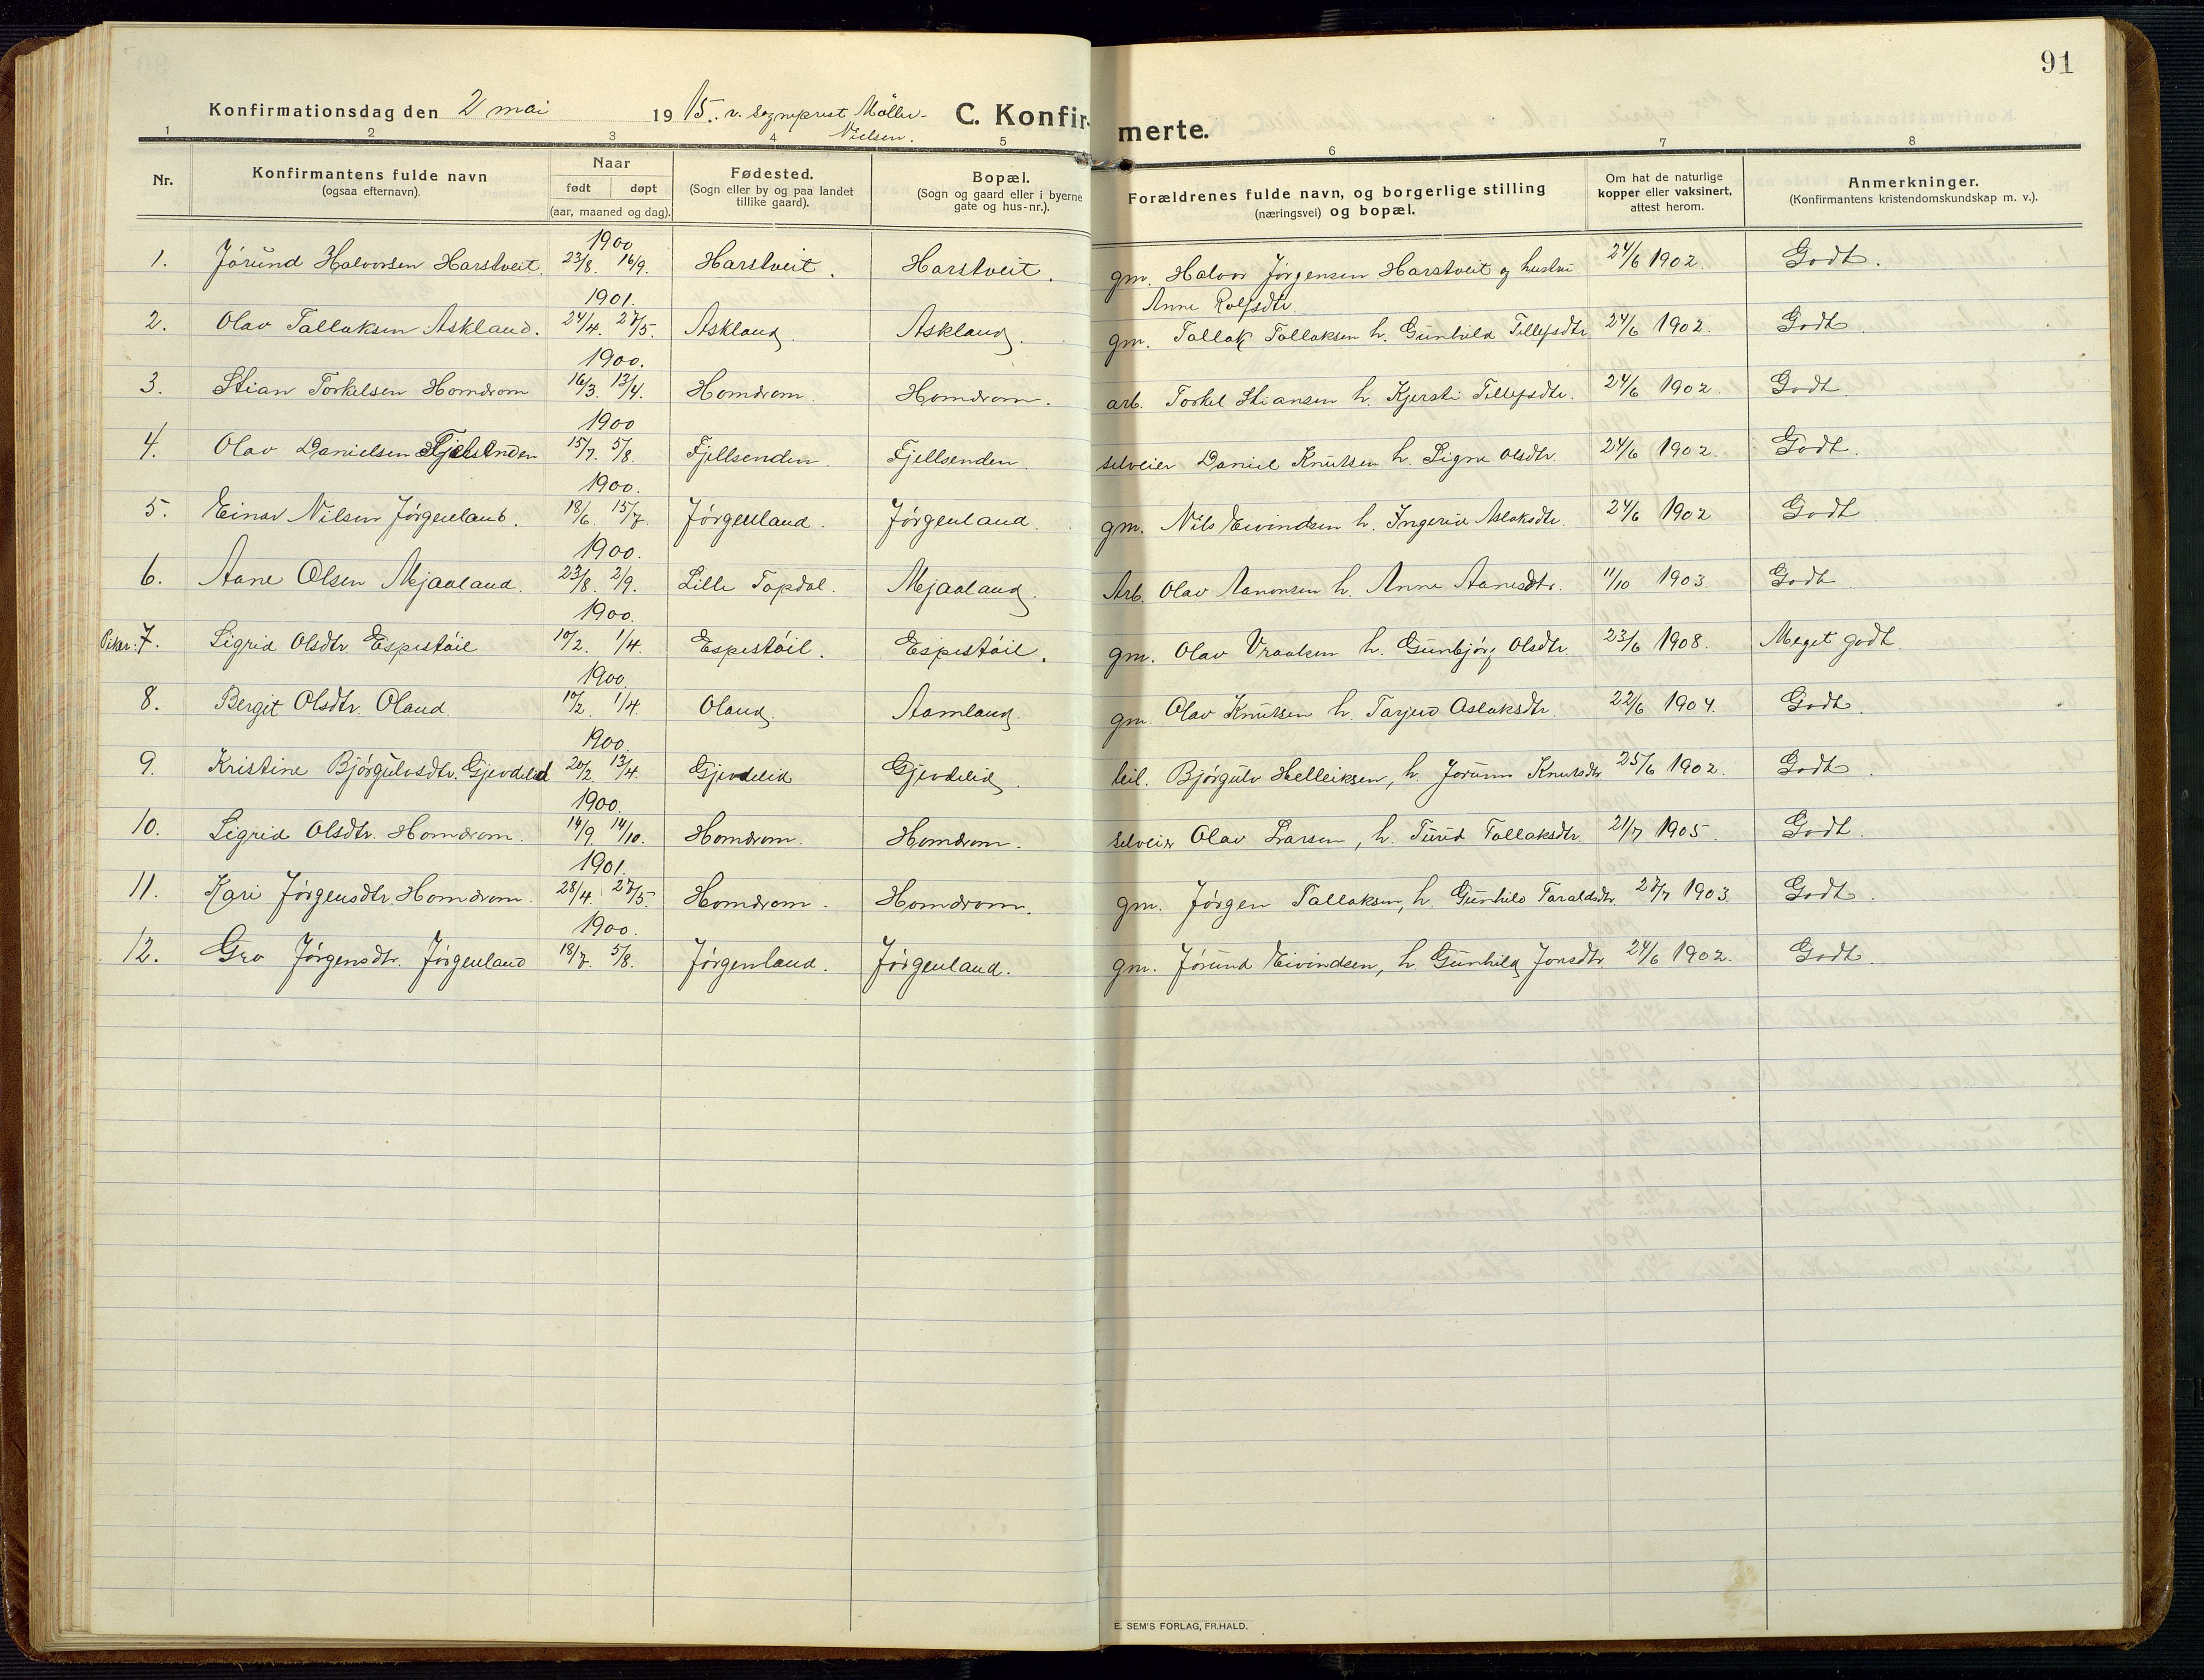 91
Konfirmationsdag den 2 mai 1915. v. Sogneprest Møller-
Nielsen.
C. Konfirmerte.
1 2 3 4 5 6 7 8
Nr.
Konfirmantens fulde navn
(ogsaa efternavn).
Naar
født døpt
(aar, maaned og dag).
Fødested.
(Sogn eller by og paa landet
tillike gaard).
Bopæl.
(Sogn og gaard eller i byerne
gate og hus-nr.).
Forældrenes fulde navn, og borgerlige stilling
(næringsvei) og bopæl.
Om hat de naturlige
kopper eller vaksinert,
attest herom.
Anmerkninger.
(Konfirmantens kristendomskundskap m. v.).
1900
1. Jórund Halvorsen Harstveit 23/8. 16/9. Harstveit. Harstveit. gm. Halvor Jörgensen Harstveit og hustru 24/6 1902. Godt.
Anne Rolfsdtr.
1901.
2. Olav Tallaksen Askland. 24/4. 27/5. Askland. Askland. gm. Tallak Tallaksen h. Gunhild Tellefsdtr 24/6 1902. Godt.
1900.
3. Stian Torkelsen Homdrom 16/3. 13/4. Homdrom. Homdrom. arb. Torkel Stiansen h. Kjersti Tellefsdtr. 24/6 1902. Godt
1900
4. Olav Danielsen Fjelsenden 15/7. 5/8. Fjellsenden Fjellsenden. selveier Daniel Knutsen h. Signe Olsdtr. 24/6 1902. Godt.
1900.
5. Einar Nilsen Jórgenland. 18/6. 15/7. Jórgenland. Jórgenland. gm. Nils Eivindsen h. Ingerid Aslaksdtr. 24/6 1902 Godt
1900.
6. Aane Olsen Mjaaland. 23/8. 2/9. Lille Topdal. Mjaaland. Arb. Olav Aanonsen h. Anne Aanesdtr. 11/10 1903. Godt.
1900.
Piker: 7. Sigrid Olsdtr. Espestóil 10/2. 1/4. Espestóil. Espestóil. gm. Olav Vraalsen h. Gunbjórg Olsdtr. 23/6 1908. Meget godt.
1900.
8. Bergit Olsdtr. Oland. 10/2. 1/4. Oland. Aamland. gm. Olav Knutsen h. Tarjerd Aslaksdtr. 22/6 1904. Godt.
1900.
9. Kristine Bjórgulvsdtr. Gjevdelid 20/2. 13/4. Gjevdelid Gjevdelid. leil. Bjórgulv Helleiksen, h. Jorunn Knutsdtr. 25/6 1902. Godt.
1900.
10. Sigrid Olsdtr. Homdrom. 14/9. 14/10. Homdrom. Homdrom. selveier Olav Larsen, h. Turid Tallaksdtr. 21/7 1905. Godt.
1901.
11. Kari Jórgensdtr. Homdrom. 28/4. 27/5. Homdrom. Homdrom. gm. Jórgen Tallaksen, h. Gunhild Taraldsdtr. 27/7 1903. Godt.
1900.
12. Gro Jórgensdtr. Jórgenland 18/7. 5/8. Jórgenland. Jórgenland. gm. Jórund Eivindsen, h. Gunhild Jonsdtr. 24/6 1902. Godt.
E. SEM'S FORLAG, FR.HALD.